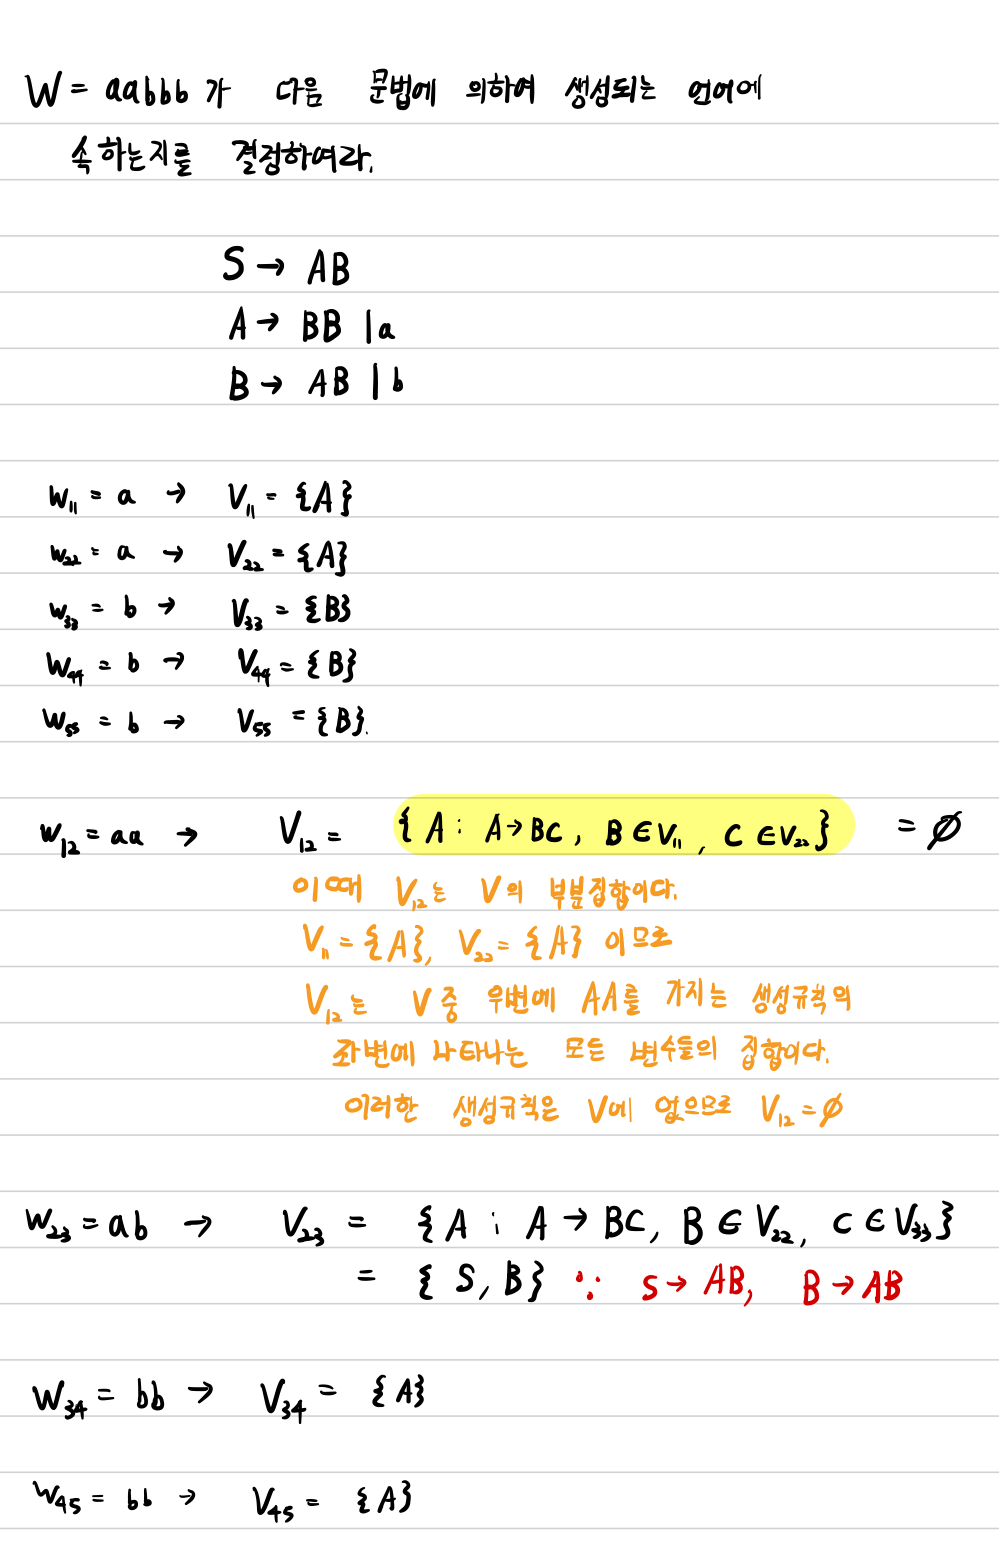 W = aabbb 가 다음 문법에 의하여 생성되는 언어에
속하는지를 결정하여라.
S → AB
A → BB | a
B → AB | b
w₁₁ = a → V₁₁ = {A}
w₂₂ = a → V₂₂ = {A}
w₃₃ = b → V₃₃ = {B}
w₄₄ = b → V₄₄ = {B}
w₅₅ = b → V₅₅ = {B}.
w₁₂ = aa → V₁₂ = {A : A → BC, B ∈ V₁₁, C ∈ V₂₂} = ∅
이때 V₁₂는 V의 부분집합이다.
V₁₁ = {A}, V₂₂ = {A} 이므로
V₁₂는 V중 우변에 AA를 가지는 생성규칙의
좌변에 나타나는 모든 변수들의 집합이다.
이러한 생성규칙은 V에 없으므로 V₁₂ = ∅
w₂₃ = ab → V₂₃ = {A : A → BC, B ∈ V₂₂, C ∈ V₃₃}
= {S, B} ∵ S → AB, B → AB
w₃₄ = bb → V₃₄ = {A}
w₄₅ = bb → V₄₅ = {A}